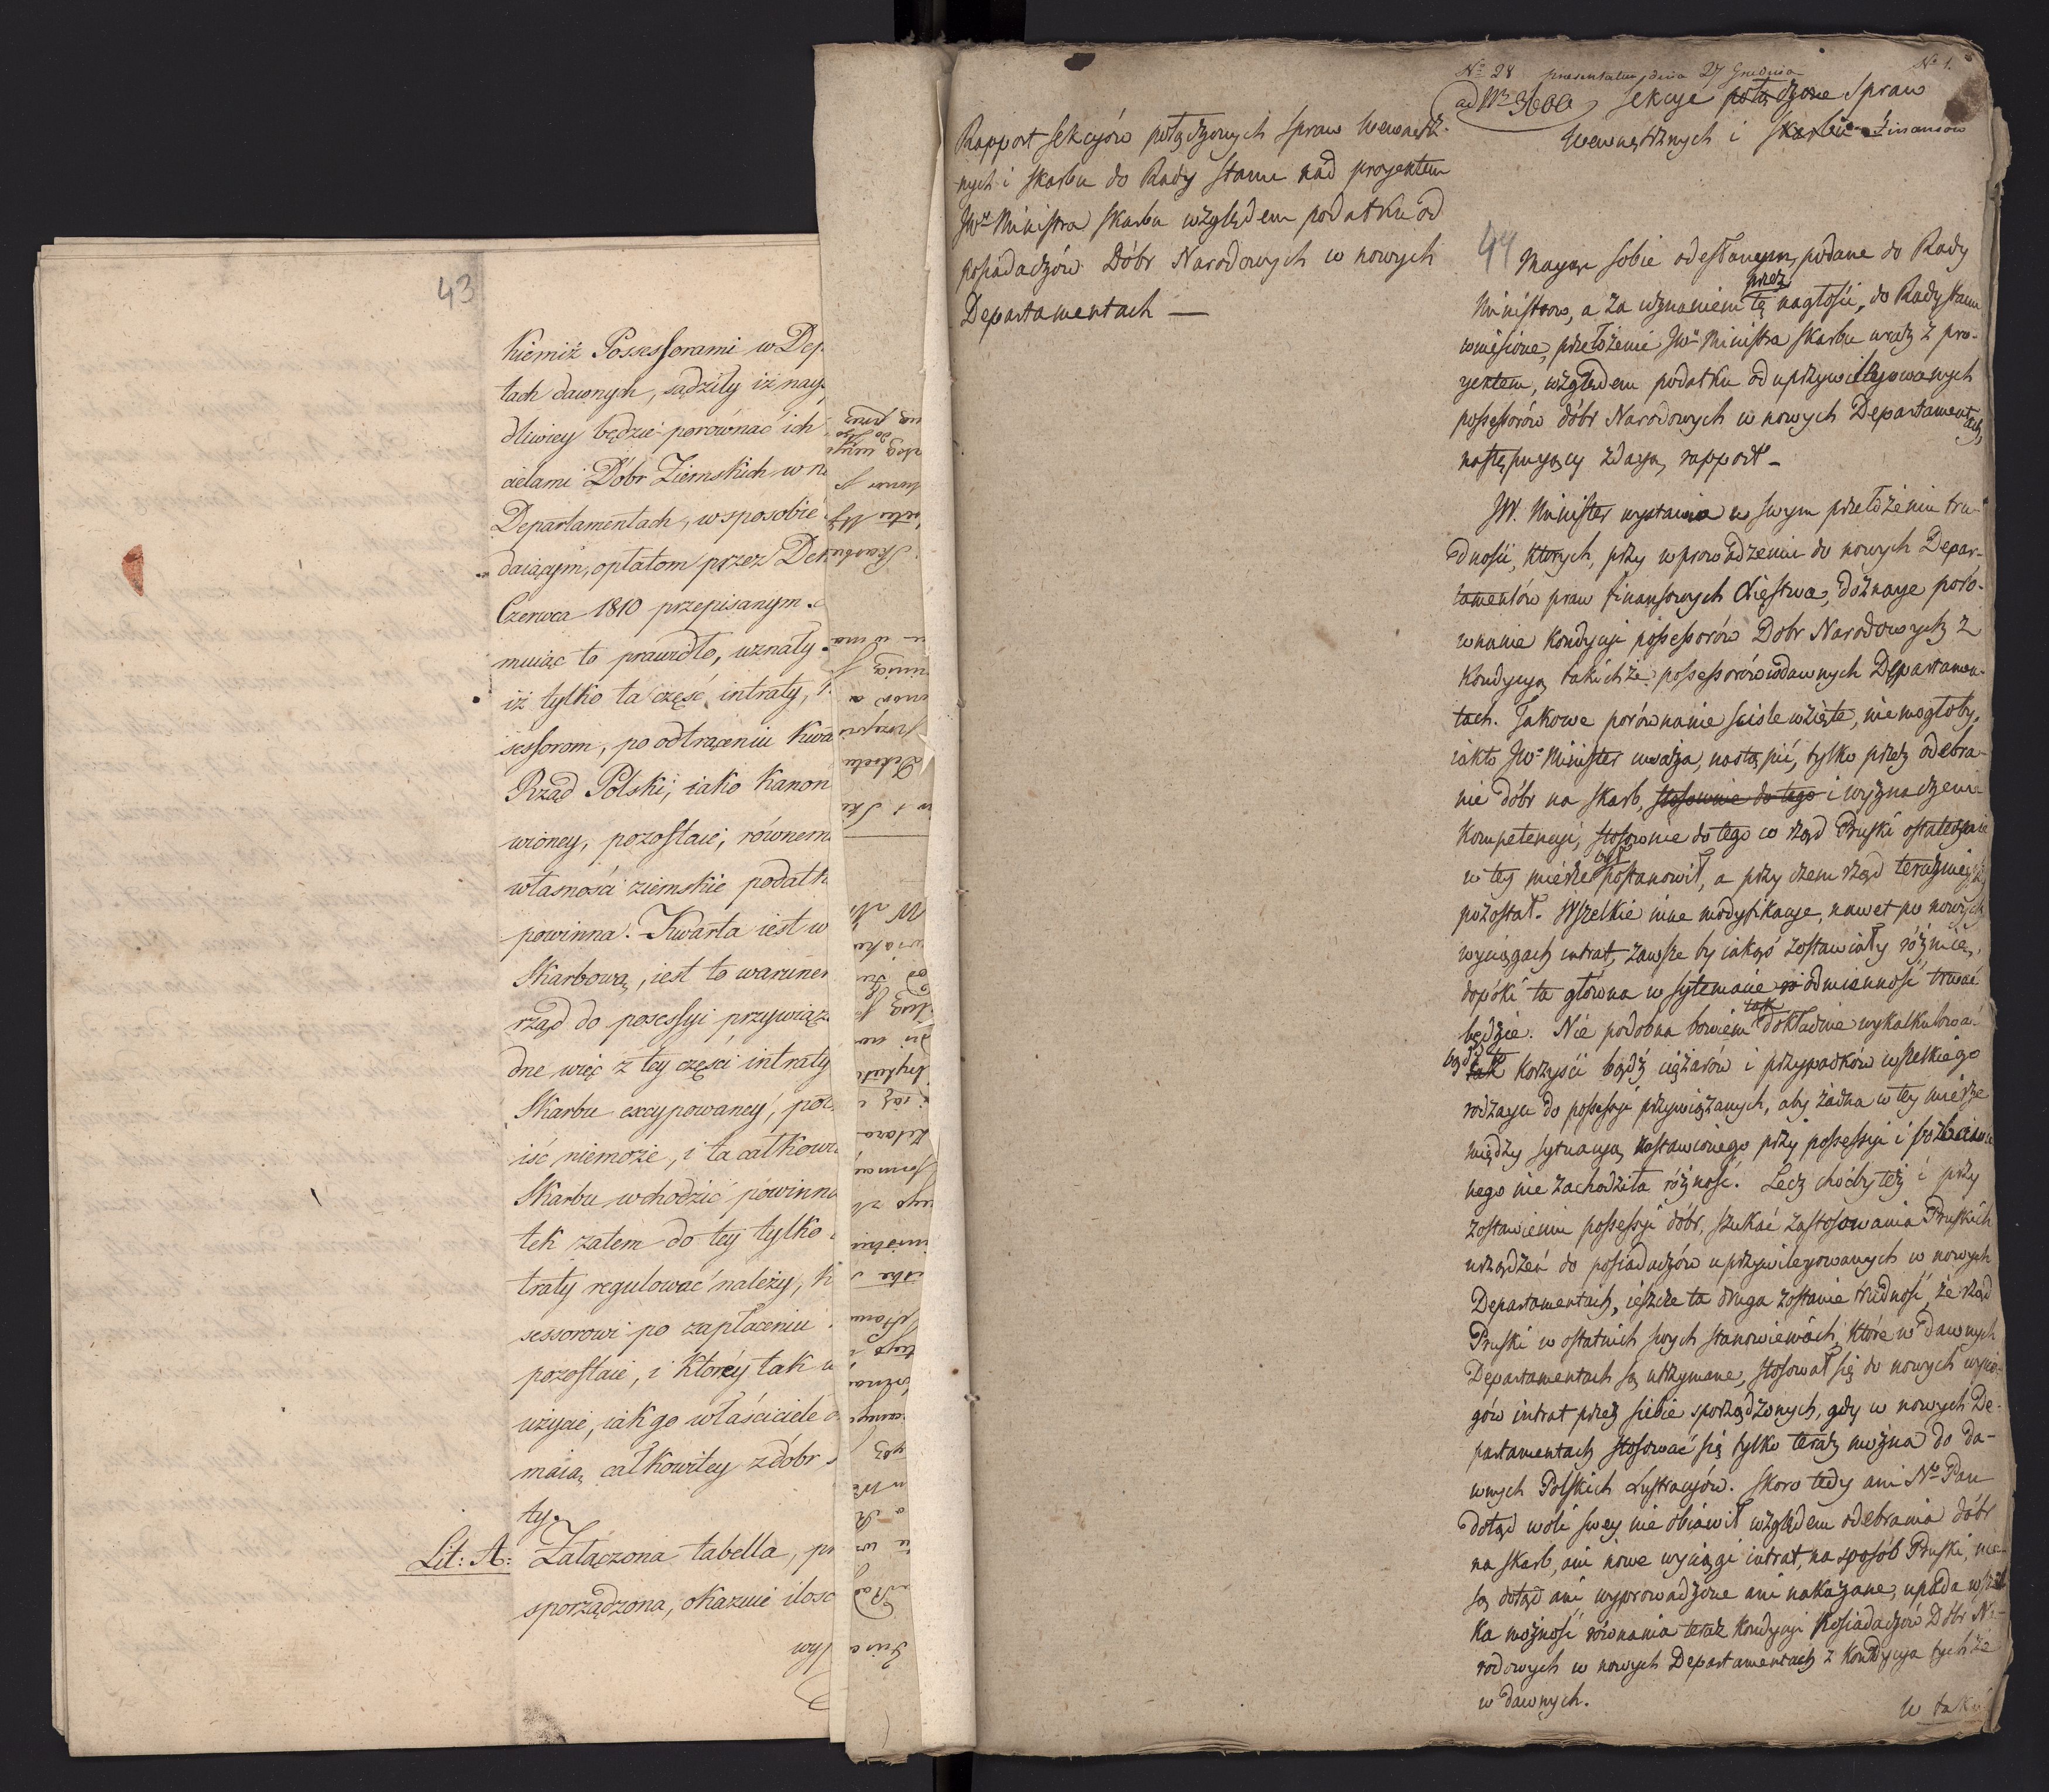 43
kiemiż Possessorami w Dep
tach dawnych, sądziły iż nay
dliwiey będzie porównać ich
cielami Dóbr Ziemskich w n
Departamentach, w sposobie
daiącym, opłatom przez De
Czerwca 1810 przepisanym.
muiąc to prawidło, uznały
iż tylko ta część intraty,
sessorom, po odtrąceniu Kwa
Rząd Polski, iako Kanon
wioney, pozostaie, równem
własności ziemskie podatk
powinna. Kwarta iest w
Skarbową, iest to warune
rząd do posessyi przywiąz
dne więc z tey części intraty
Skarbu excypowaney, po
iść niemoże, i ta całkow
Skarbu wchodzić powinna
tek zatem do tey tylko
traty regulować należy, k
sessorowi po zapłaceniu
pozostaie, i którey tak u
użycie, iak go właściciele
maią całkowitey z dóbr
ty.
Lit: A: Załączona tabella, pr
sporządzona, okazuie ilość
wy
Rapport Sekcyów połączonych Spraw Wewnętrz-
nych i Skarbu do Rady Stanu nad proyektem
JW Ministra Skarbu względem podatku od
posiadaczów Dóbr Narodowych w nowych
Departamentach —
No 28 praesentatum dnia 27 Grudnia No 1.
ad No 3600 Sekcye połączone Spraw
Wewnętrznych i Skarbu Finansów
44
Maiąc sobie odesłanym, podane do Rady
przez
Ministrów, a za uznaniem tę nagłości, do Rady Stanu
wniesione, przełożenie JW Ministra Skarbu wraz z pro-
yektem, względem podatku od uprzywileiowanych
possessorów dóbr Narodowych w nowych Departamentach,
następuiący zdaią rapport -
JW. Minister wystawia w swym przełożeniu tru-
dności, których, przy wprowadzeniu do nowych Depar-
tamentów praw finansowych Xięstwa, doznaie poró-
wnanie kondycyi possessorów Dóbr Narodowych z
kondycyą takichże possessorów w dawnych Departamen-
tach. Jakowe porównanie ściśle wzięte, nie mogłoby,
iak to JW Minister uważa, nastąpić, tylko przez odebra-
nie dóbr na skarb, stosownie do tego i wyznaczenie
kompetencyi, stosownie do tego co rząd Pruski ostatecznie
był
w tey mierze postanowił, a przy czem rząd teraźnieyszy
pozostał. Wszelkie inne modyfikacye, nawet po nowych
wyciągach intrat, zawsze by iakąś zostawiały różnicę,
dopóki ta główna w systemacie odmienność trwać
tak
będzie. Nie podobna bowiem dokładnie wykalkulować
bądź
tak korzyści bądź ciężarów i przypadków wszelkiego
rodzaiu do possessyi przywiązanych, aby żadna w tey mierze
między sytuacyą zostawionego przy possessyi i pozbawio-
nego nie zachodziła różność. Lecz choćby też i przy
zostawieniu possessyi dóbr, szukać zastosowania Pruskich
urządzeń do posiadaczów uprzywileiowanych w nowych
Departamentach, ieszcze ta druga zostanie trudność, że rząd
Pruski w ostatnich swych stanowieniach, które w dawnych
Departamentach są utrzymane, stosował się do nowych wycią-
gów intrat przez siebie sporządzonych, gdy w nowych De-
partamentach stosować się tylko teraz można do da-
wnych Polskich Lustracyów. Skoro tedy ani N. Pan
dotąd woli swey nie obiawił względem odebrania dóbr
na skarb, ani nowe wyciągi intrat, na sposób Pruski, nie
są dotąd ani wyprowadzone ani nakazane, upada wszel-
ka możność równania teraz kondycyi Posiadaczów Dóbr Na-
rodowych w nowych Departamentach z kondycyą tychże
w dawnych.
W taki